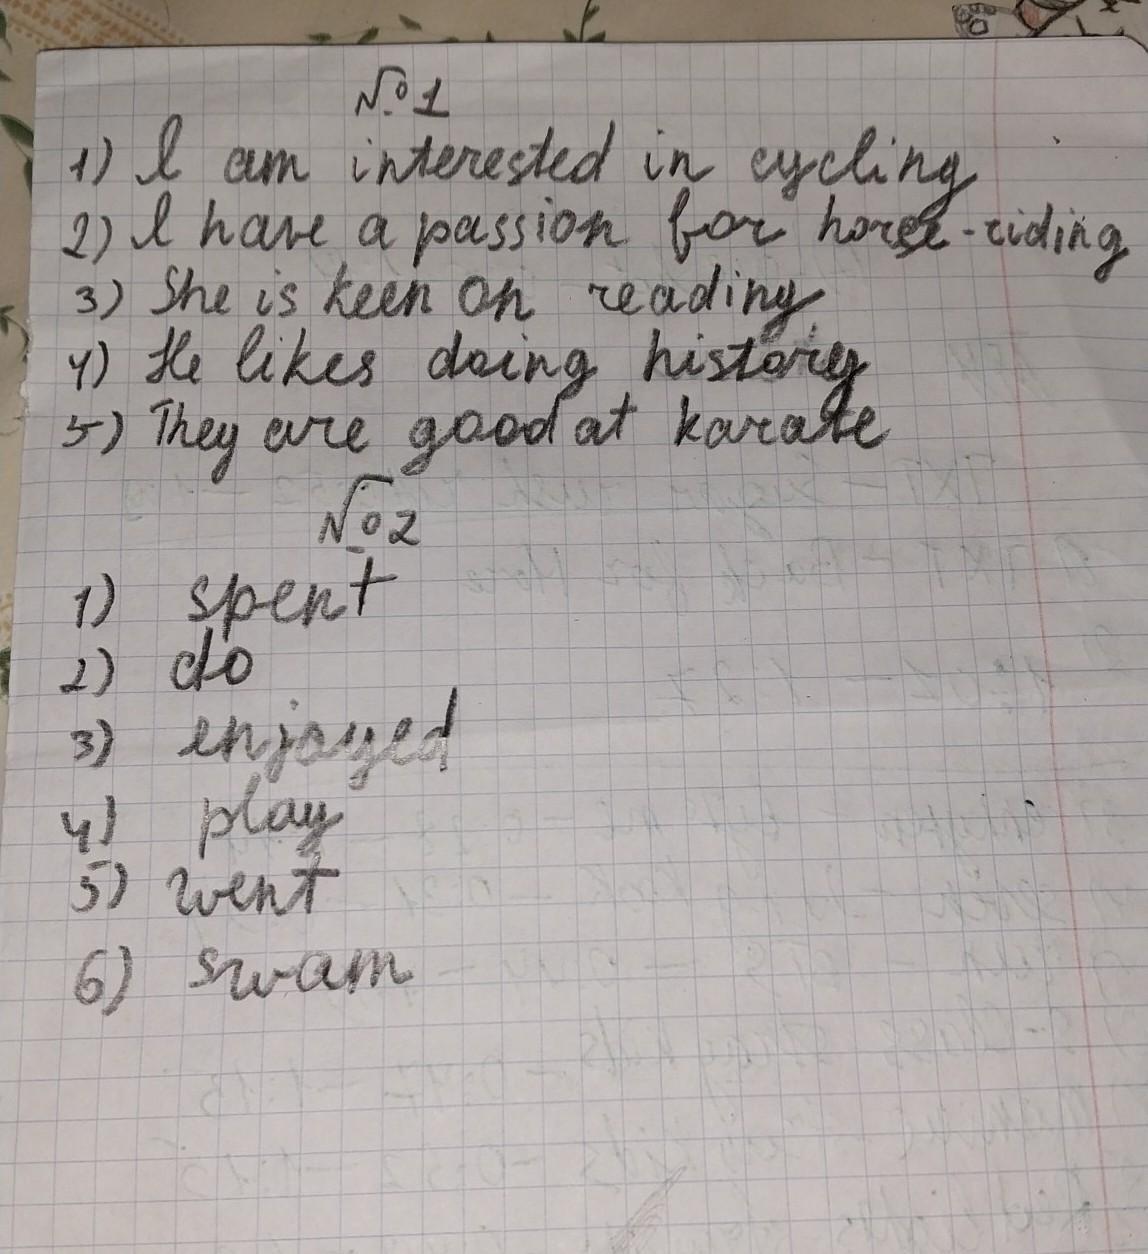 №1
1) I am interested in cycling
2) I have a passion for horse-riding
3) She is keen on reading
4) He likes doing history
5) They are good at karate
№2
1) spent
2) do
3) enjoyed
4) play
5) went
6) swam